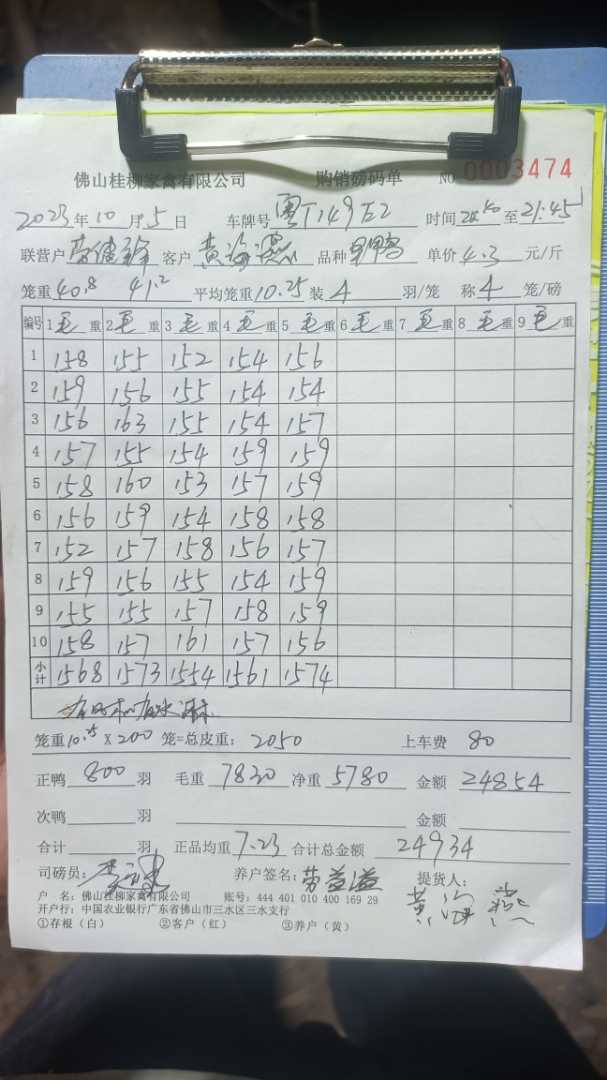 佛山桂柳家禽有限公司 购销磅码单 NO 0003474
2023年10月5日 车牌号 粤T149E2 时间 至21:45
联营户 客户 黄海燕 品种 单价4.3元/斤
笼重40.8 41.2 平均笼重10.25装4羽/笼 称4笼/磅
编号 1毛重 2毛重 3毛重 4毛重 5毛重 6毛重 7毛重 8毛重 9毛重
1 158 155 152 154 156
2 159 156 155 154 154
3 156 163 155 154 157
4 157 155 154 159 159
5 158 160 153 157 159
6 156 159 154 158 158
7 152 157 158 156 157
8 159 156 155 154 159
9 155 155 157 158 159
10 158 157 161 157 156
小计 1568 1573 1554 1561 1574
笼重10.25X200笼=总皮重：2050 上车费 80
正鸭800羽 毛重7830净重5780 金额24854
次鸭 羽 金额
合计 羽 正品均重7.23合计总金额24934
司磅员： 养户签名：劳益溢 提货人：
黄海燕
户 名：佛山桂柳家禽有限公司 账号：444 401 010 400 169 29
开户行：中国农业银行广东省佛山市三水区三水支行
①存根（白） ②客户（红） ③养户（黄）